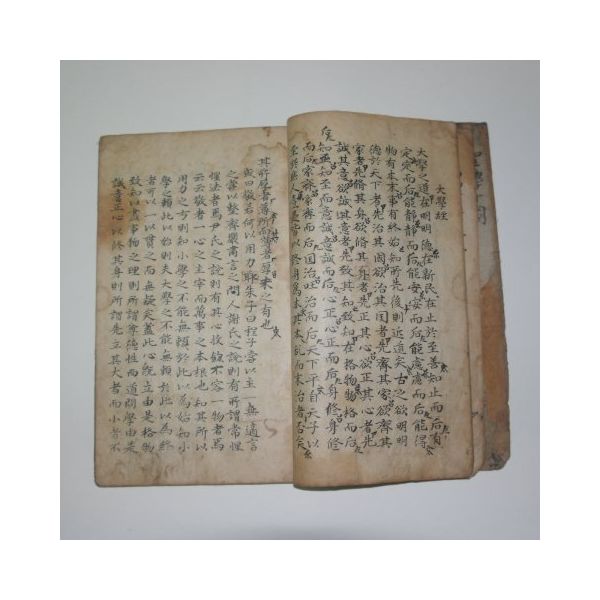 大學經
大學之道在明明德在新民在止於至善知止而后有
定定而后能靜靜而后能安安而后能慮慮而后能得
物有本末事有終始知所先後則近道矣古之欲明明
德於天下者先治其國欲治其國者先齊其家欲齊其
家者先脩其身欲脩其身者先正其心欲正其心者先
誠其意欲誠其意者先致其知致知在格物物格而后
知至知至而意誠意誠而后心正心正而后身修身修
而后家齊家齊而后国治国治而后天下平自天子以
至於庶人壹是皆以修身爲本其本乱而末治者否矣
其所厚者薄而其所薄者厚未之有也
或曰敬若何以用力耶朱子曰程子嘗以主一無適言
之嘗以整齊嚴肅言之門人謝氏之說則有所謂常惺
惺法者焉尹氏之說則有其心收斂不容一物者焉
云云敬者一心之主宰而萬事之本根也知其所以
用力之方則知小學之不能無賴於此以爲始知小
學之賴此以始則夫大學之不能無賴於此以爲終
者可以一以貫之而無疑矣蓋此心旣立由是格物
致知以盡事物之理則所謂尊德性而道問學由是
誠意正心以修其身則所謂先立其大者而小者不